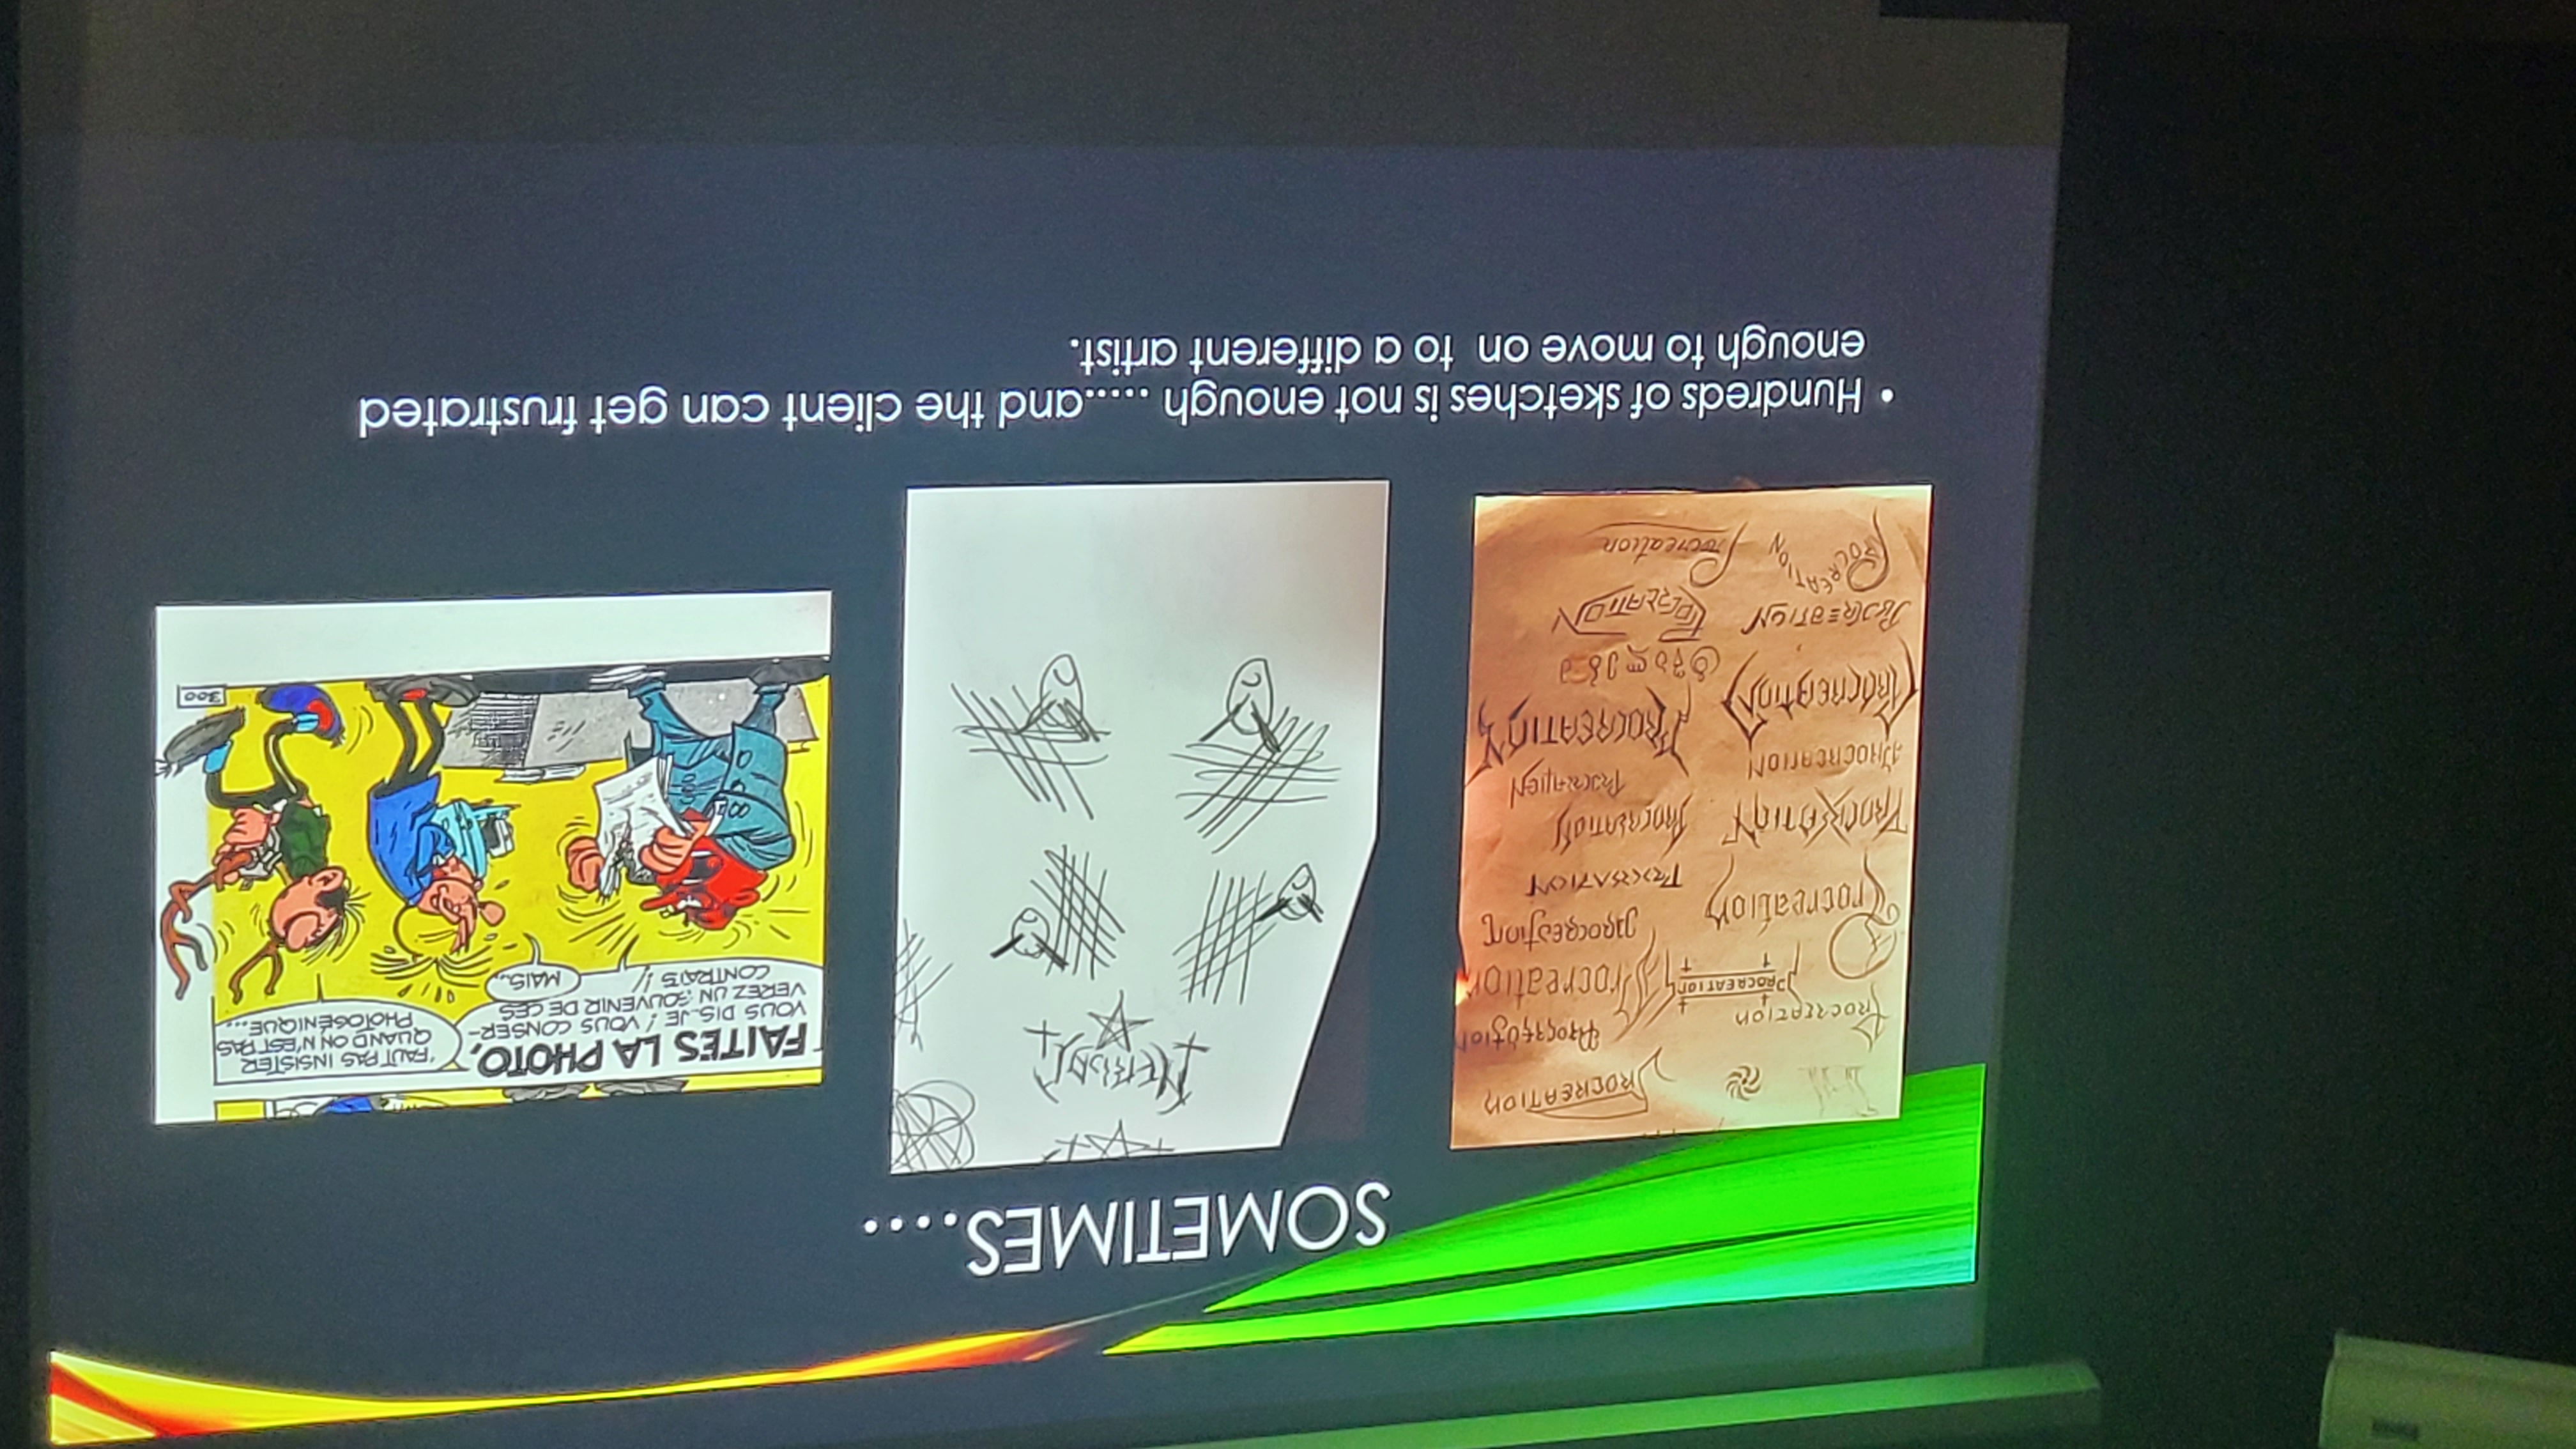 SOMETIMES....
PROCREATION
PROCREATION
Procreation
PROCREATION
Procreation
Procreation
PROCREATION
PROCREATION
PROCREATION
PROCREATION
PROCREATION
PROCREATION
PROCREATION
PROCREATION
PROCREATION
Procreation
FAITES LA PHOTO,
VOUS DIS-JE ! VOUS CONSER-
VEREZ UN SOUVENIR DE CES
CONTRATS !!
MAIS...
'FAUT PAS INSISTER
QUAND ON N'EST PAS
PHOTOGÉNIQUE...
300
• Hundreds of sketches is not enough .....and the client can get frustrated
enough to move on  to a different artist.